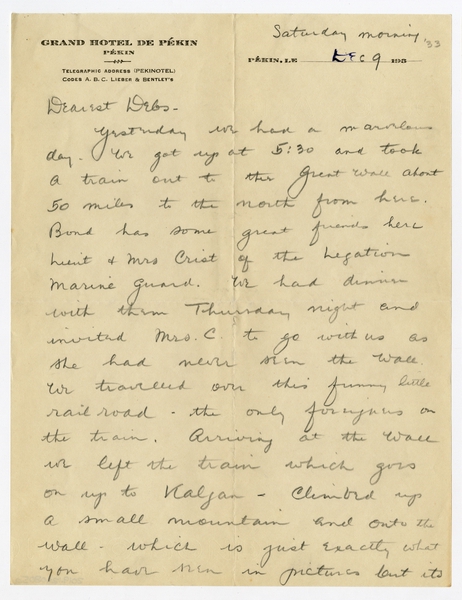 Saturday morning '33
GRAND HOTEL DE PÉKIN
PÉKIN
TELEGRAPHIC ADDRESS (PEKINOTEL)
CODES A. B. C. LIEBER & BENTLEY'S
PÉKIN, LE Dec 9 193
Dearest Debs-
Yesterday we had a marvelous
day. We got up at 5:30 and took
a train out to the Great Wall about
50 miles to the north from here.
Bond has some great friends here
Lieut & Mrs Crist of the Legation
Marine Guard. We had dinner
with them Thursday night and
invited Mrs. C. to go with us as
she had never seen the wall.
We travelled over this funny little
railroad - the only foreigners on
the train. Arriving at the Wall
we left the train which goes
on up to Kalgan - Climbed up
a small mountain and onto the
wall - which is just exactly what
you have seen in pictures but its